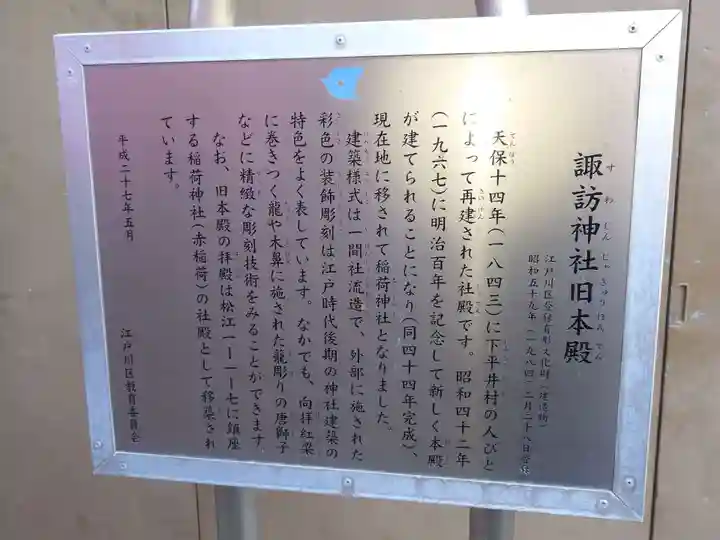 諏訪神社旧本殿
すわじんじゃきゅうほんでん
江戸川区登録有形文化財(建造物)
昭和五十九年(一九八四)二月二十八日登録
天保十四年(一八四三)に下平井村の人びと
によって再建された社殿です。昭和四十二年
(一九六七)に明治百年を記念して新しく本殿
が建てられることになり(同四十四年完成)、
現在地に移されて稲荷神社となりました。
建築様式は一間社流造で、外部に施された
彩色の装飾彫刻は江戸時代後期の神社建築の
特色をよく表しています。なかでも、向拝虹梁
に巻きつく龍や木鼻に施された籠彫りの唐獅子
などに精緻な彫刻技術をみることができます。
なお、旧本殿の拝殿は松江一ー一ー七に鎮座
する稲荷神社(赤稲荷)の社殿として移築され
ています。
平成二十七年五月
江戸川区教育委員会